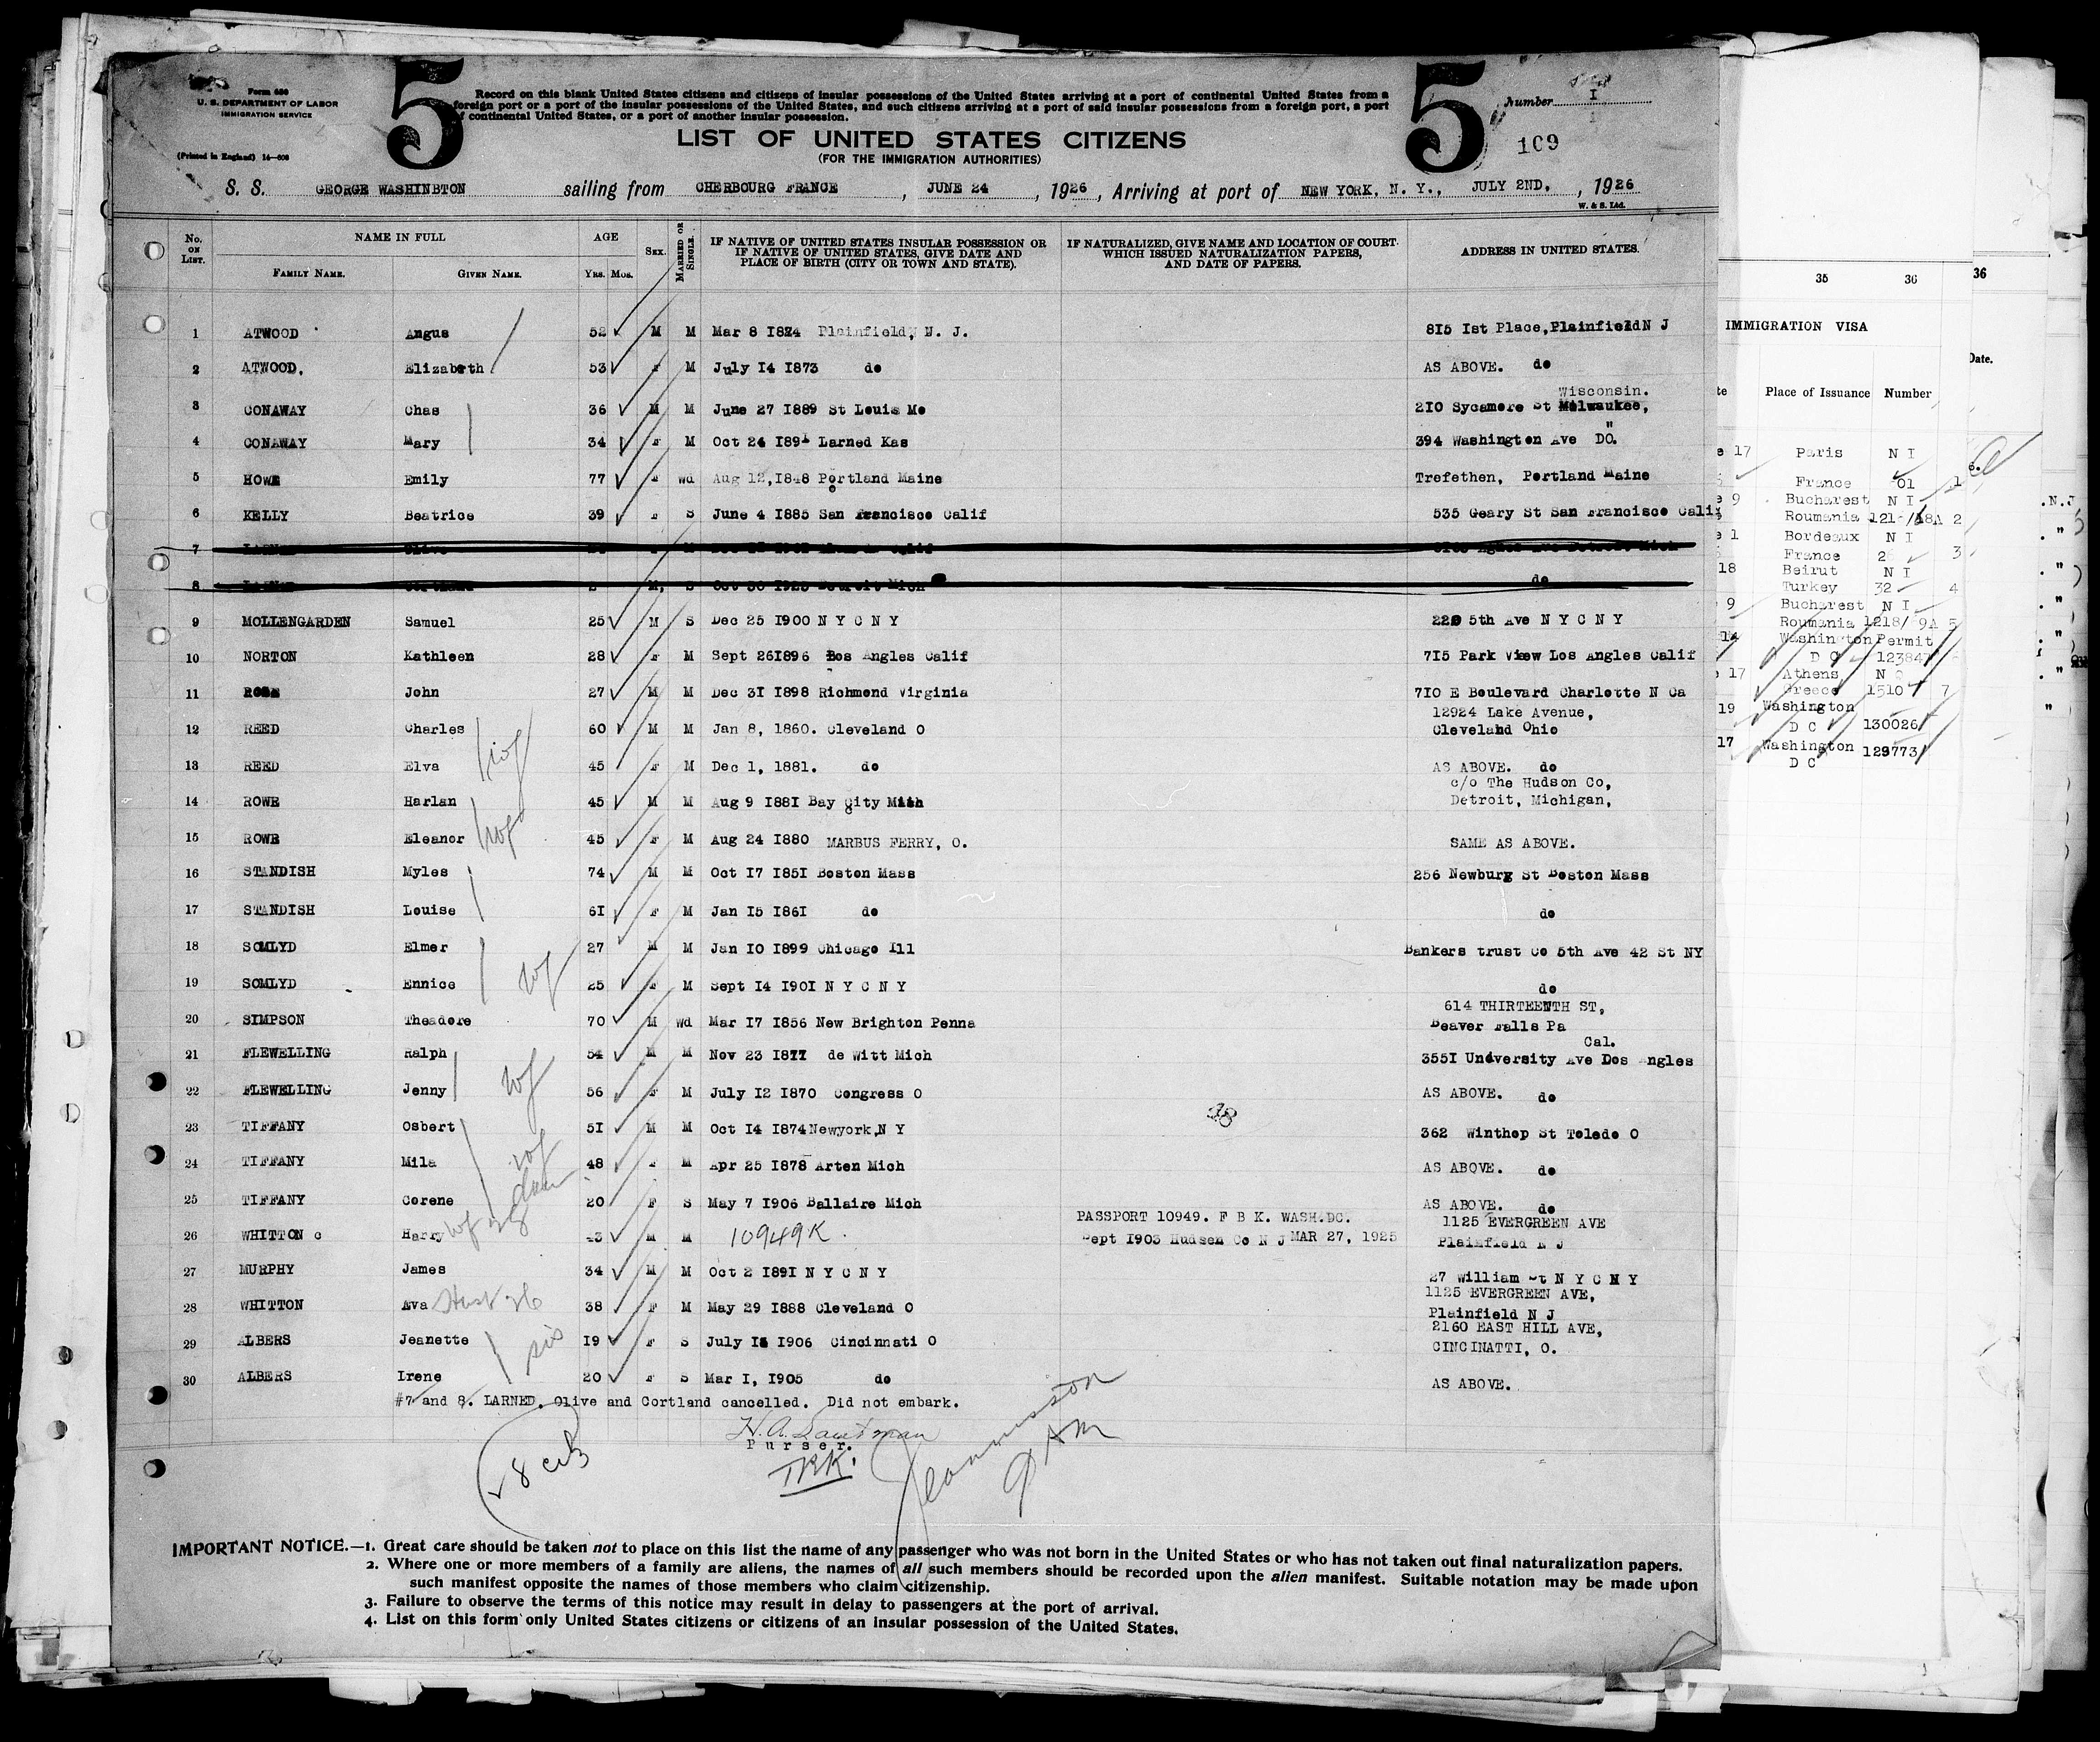 Form 630
U. S. DEPARTMENT OF LABOR
IMMIGRATION SERVICE
(Printed in England) 14—606
5
Record on this blank United States citizens and citizens of insular possessions of the United States arriving at a port of continental United States from a
foreign port or a port of the insular possessions of the United States, and such citizens arriving at a port of said insular possessions from a foreign port, a port
of continental United States, or a port of another insular possession.
5
Number I
109
LIST OF UNITED STATES CITIZENS
(FOR THE IMMIGRATION AUTHORITIES)
S. S. GEORGE WASHINBTON sailing from CHERBOURG FRANCE, JUNE 24, 1926, Arriving at port of NEW YORK, N. Y., JULY 2ND, 1926
W. & S. Ltd.
No. ON LIST. NAME IN FULL FAMILY NAME. GIVEN NAME. AGE YRS. MOS. SEX. MARRIED OR SINGLE. IF NATIVE OF UNITED STATES INSULAR POSSESSION OR IF NATIVE OF UNITED STATES, GIVE DATE AND PLACE OF BIRTH (CITY OR TOWN AND STATE). IF NATURALIZED, GIVE NAME AND LOCATION OF COURT WHICH ISSUED NATURALIZATION PAPERS, AND DATE OF PAPERS. ADDRESS IN UNITED STATES.
1 ATWOOD Angus 52 M M Mar 8 I874 Plainfield, N. J. 8I5 Ist Place, Plainfield N J
2 ATWOOD, Elizabeth 53 F M July I4 I873 do AS ABOVE. do
Wisconsin.
3 CONAWAY Chas 36 M M June 27 I889 St Louis Mo 2I0 Sycamore St Milwaukee,
4 CONAWAY Mary 34 F M Oct 24 I89I Larned Kas 394 Washington Ave DO. "
5 HOWE Emily 77 F Wd Aug I2, I848 Portland Maine Trefethen, Portland Maine
6 KELLY Beatrice 39 F S June 4 I885 San Francisco Calif 535 Geary St San Francisco Calif
7
8 M, S Oct 30 I925 Detroit Mich do
9 MOLLENGARDEN Samuel 25 M S Dec 25 I900 N Y C N Y 220 5th Ave N Y C N Y
10 NORTON Kathleen 28 F M Sept 26I896 Los Angles Calif 7I5 Park View Los Angles Calif
11 ROSE John 27 M M Dec 3I I898 Richmond Virginia 7I0 E Boulevard Charlotte N Ca
12 REED Charles 60 M M Jan 8, 1860. Cleveland O 12924 Lake Avenue,
Cleveland Ohio
13 REED Elva 45 F M Dec 1, 1881. do AS ABOVE. do
wf
14 ROWE Harlan 45 M M Aug 9 I88I Bay City Mich c/o The Hudson Co,
Detroit, Michigan,
15 ROWE Eleanor 45 F M Aug 24 I880 MARBUS FERRY, O. SAME AS ABOVE.
wf
16 STANDISH Myles 74 M M Oct I7 I85I Boston Mass 256 Newburg St Boston Mass
17 STANDISH Louise 6I F M Jan I5 I86I do do
18 SOMLYD Elmer 27 M M Jan I0 I899 Chicago Ill Bankers trust Co 5th Ave 42 St NY
19 SOMLYD Ennice wf 25 F M Sept I4 I90I N Y C N Y do
20 SIMPSON Theadore 70 M Wd Mar I7 I856 New Brighton Penna 614 THIRTEENTH ST,
Beaver Falls Pa
Cal.
21 FLEWELLING Ralph 54 M M Nov 23 I87I de Witt Mich 355I University Ave Dos Angles
22 FLEWELLING Jenny wf 56 F M July I2 I870 Congress O AS ABOVE. do
23 TIFFANY Osbert 5I M M Oct I4 I874 Newyork, N Y 362 Winthop St Toledo O
24 TIFFANY Mila wf 48 F M Apr 25 I878 Arten Mich AS ABOVE. do
25 TIFFANY Corene dau 20 F S May 7 I906 Ballaire Mich AS ABOVE. do
26 WHITTON c Harry wf 28 43 M M 10949K. PASSPORT 10949. F B K. WASH.DC.
Sept I903 Hudson Co N J MAR 27, 1925 1125 EVERGREEN AVE
Plainfield N J
27 MURPHY James 34 M M Oct 2 I89I N Y C N Y 27 William St N Y C N Y
28 WHITTON Ava Husb 26 38 F M May 29 I888 Cleveland O 1125 EVERGREEN AVE,
Plainfield N J
29 ALBERS Jeanette 19 F S July I5 I906 Cincinnati O 2160 EAST HILL AVE,
CINCINATTI, O.
30 ALBERS Irene sis 20 F S Mar I, I905 do AS ABOVE.
#7 and 8. LARNED, Olive and Cortland cancelled. Did not embark.
Purser.
9 AM
IMPORTANT NOTICE.—1. Great care should be taken not to place on this list the name of any passenger who was not born in the United States or who has not taken out final naturalization papers.
2. Where one or more members of a family are aliens, the names of all such members should be recorded upon the alien manifest. Suitable notation may be made upon
such manifest opposite the names of those members who claim citizenship.
3. Failure to observe the terms of this notice may result in delay to passengers at the port of arrival.
4. List on this form only United States citizens or citizens of an insular possession of the United States.
35 36
IMMIGRATION VISA
Place of Issuance Number
17 Paris N I
France 01 1
9 Bucharest N I
Roumania 1218/18A 2
1 Bordeaux N I
France 2 3
18 Beirut N I
Turkey 32 4
9 Bucharest N I
Roumania 1218/ 9A 5
14 Washington Permit
D C 123847
17 Athens N
Greece 1510 7
19 Washington
D C 130026
17 Washington 129773
D C
36
Date.